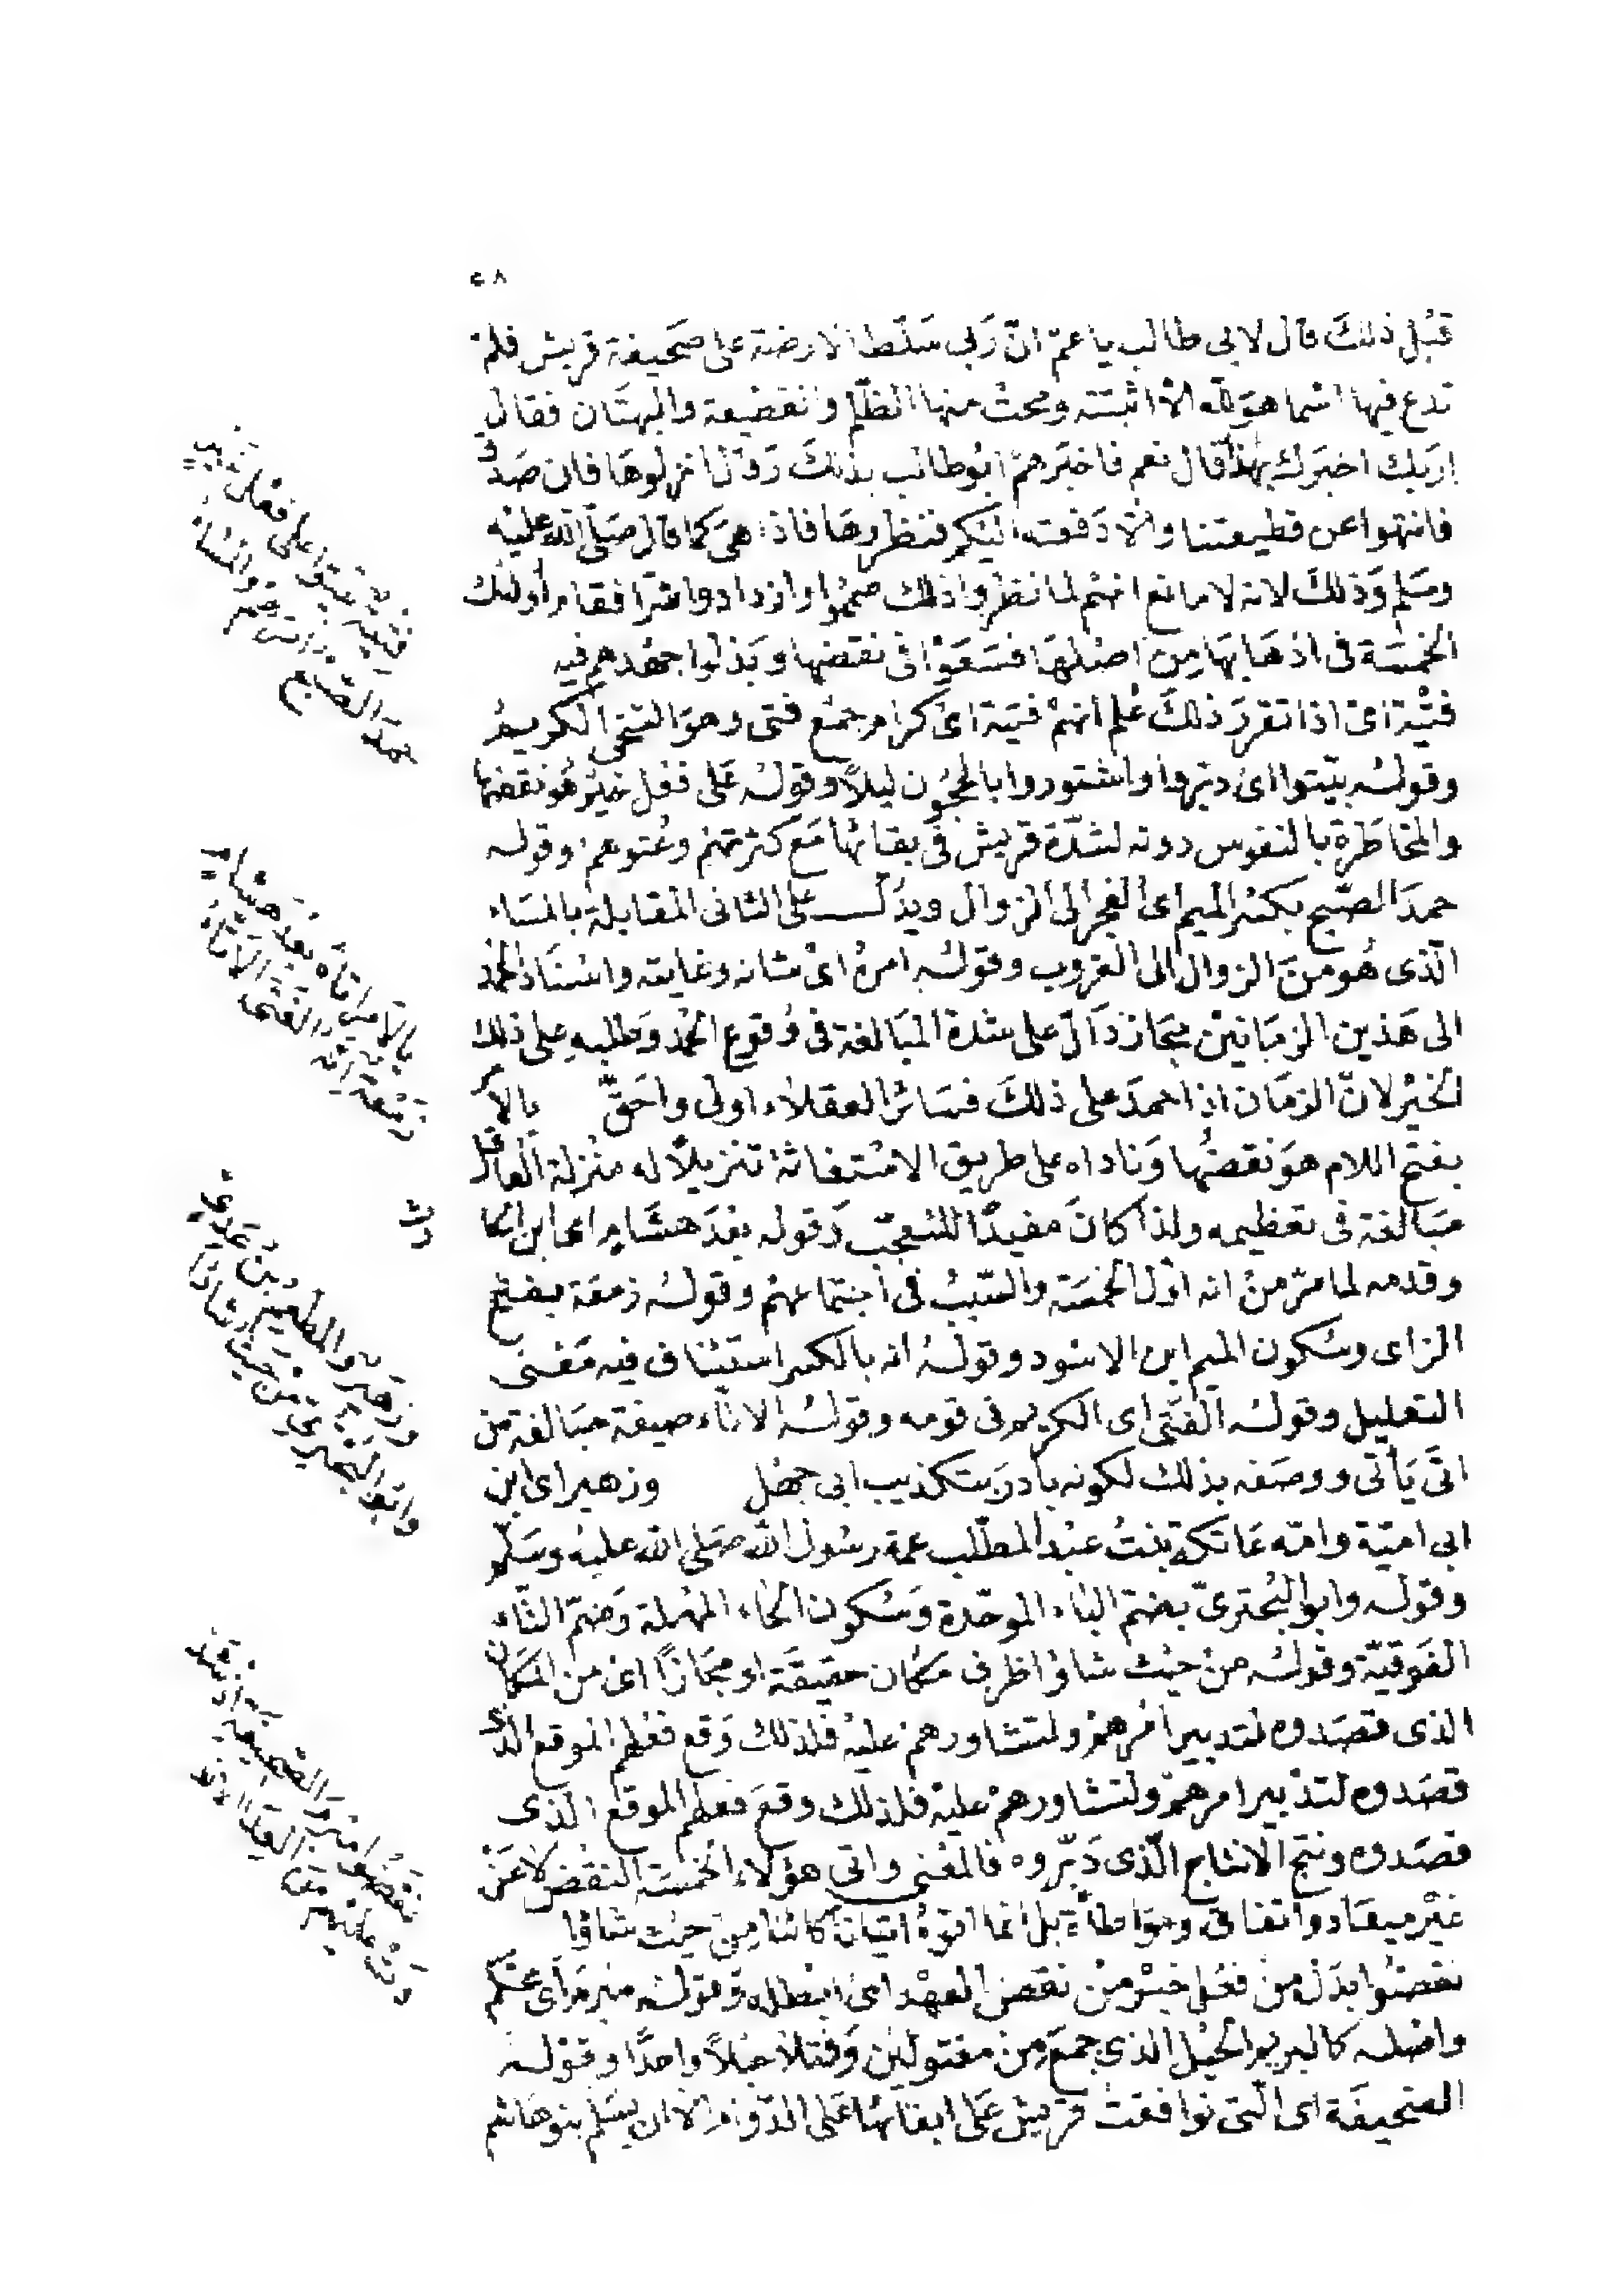 ٥٨
قبل ذلك قال لابى طالب يا عم ان ربى سلط الارضة على صحيفة قريش فلم
تدع فيها اسما هو لله الا اثبتته ومحت منها الظلم والقطيعة والبهتان فقال
اربك اخبرك بهذا قال نعم فاخبرهم ابو طالب بذلك وقال انزلوها فان صدق
فانتهوا عن قطيعتنا والا دفعته اليكم فنظروها فاذا هى كما قال صلى الله عليه
وسلم وذلك لانه لا مانع انهم لما نظروا ذلك صمموا وازدادوا شرا فقام اولئك
الخمسة فى اذهابها من اصلها فسعوا فى نقضها وبذلوا جهدهم فيه
فتية اى اذا تقرر ذلك علم انهم فتية اى كرام جمع فتى وهو السخى الكريم
وقوله بيتوا اى دبروا واشتوروا بالحجون ليلا وقوله على فعل خير هو نقضها
والمخاطرة بالنفوس دونه لشدة قريش فى بقائها مع كثرتهم وعتوهم وقوله
حمد الصبح بكسر الميم اى الفجر الى الزوال ويدل على الثانى المقابلة بالمساء
الذى هو من الزوال الى الغروب وقوله امره اى شانه وغايته واسناد الحمد
الى هذين الزمانين مجاز دال على شدة المبالغة فى وقوع الحمد وطلبه على ذلك
الخير لان الزمان اذا حمد على ذلك فسائر العقلاء اولى واحق يالامر
بفتح اللام هو نقضها وناداه على طريق الاستغاثة تنزيلا له منزلة العاقل
مبالغة فى تعظيمه ولذا كان مفيدا للتعجب وقوله بعد هشام اى ابن الحا
رث
وقدمه لما مر من انه اول الخمسة والسبب فى اجتماعهم وقوله زمعة بفتح
الزاى وسكون الميم ابن الاسود وقوله انه بالكسر استئناف فيه معنى
التعليل وقوله الفتى اى الكريم فى قومه وقوله الاتاء صيغة مبالغة من
اتى ياتى ووصفه بذلك لكونه بادر بتكذيب ابى جهل وزهير اى ابن
ابى امية وامه عاتكة بنت عبد المطلب عمة رسول الله صلى الله عليه وسلم
وقوله وابو البحترى بضم الباء الموحدة وسكون الحاء المهملة وضم التاء
الفوقية وقوله من حيث شاؤا ظرف مكان حقيقة او مجازا اى من المكان
الذى قصدوه لتدبير امرهم ولتشاورهم عليه فلذلك وقع فعلهم الموقع الذى
قصدوه لتدبير امرهم ولتشاورهم عليه فلذلك وقع فعلهم الموقع الذى
قصدوه ونتج الانتاج الذى دبروه فالمعنى واتى هؤلاء الخمسة النقض لا عن
غير ميعاد واتفاق ومواطأة بل انما اتوه اتيانا كائنا من حيث شاؤا
نقضوا بدل من فعل خير من نقض العهد اى ابطله وقوله مبرم اى محكم
واصله كالبريم الحبل الذى جمع من مفتولين وفتلا حبلا واحدا وقوله
الصحيفة اى التى توافقت قريش على ابقائها على الدوام الا ان يسلم بنو هاشم
فتية بيتوا على فعل خير
حمد الصبح امرهم والمساء
يالامر اتاه بعد هشام
زمعة انه الفتى الاتاء
وزهير والمطعم بن عدى
وابو البحترى من حيث شاؤا
نقضوا مبرم الصحيفة اذ شد
دت عليهم من العدا الانداء